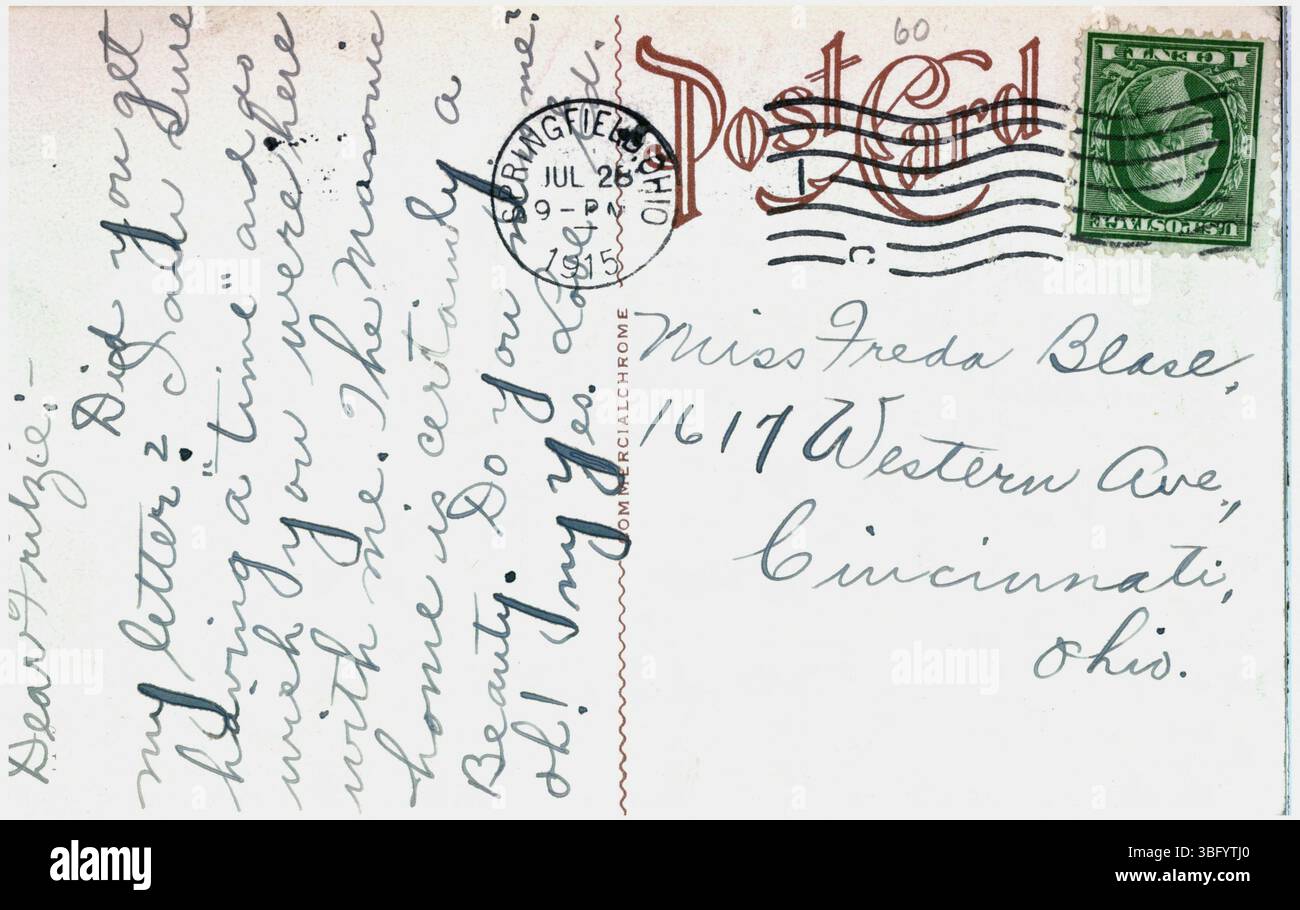 Dear Fritzie:-
Did you get
my letter? I am sure
having a "time" and
wish you were here
with me. The Masonic
home is certainly a
Beauty. Do you me.
oh! my yes. Love
COMMERCIALCHROME
60
Post Card
SPRINGFIELD, OHIO
JUL 28
9-PM
1915
C
U.S. POSTAGE
1 CENT 1
Miss Freda Blase,
1617 Western Ave.,
Cincinnati,
Ohio.
alamy
Image ID: 3BFYTJ0
www.alamy.com